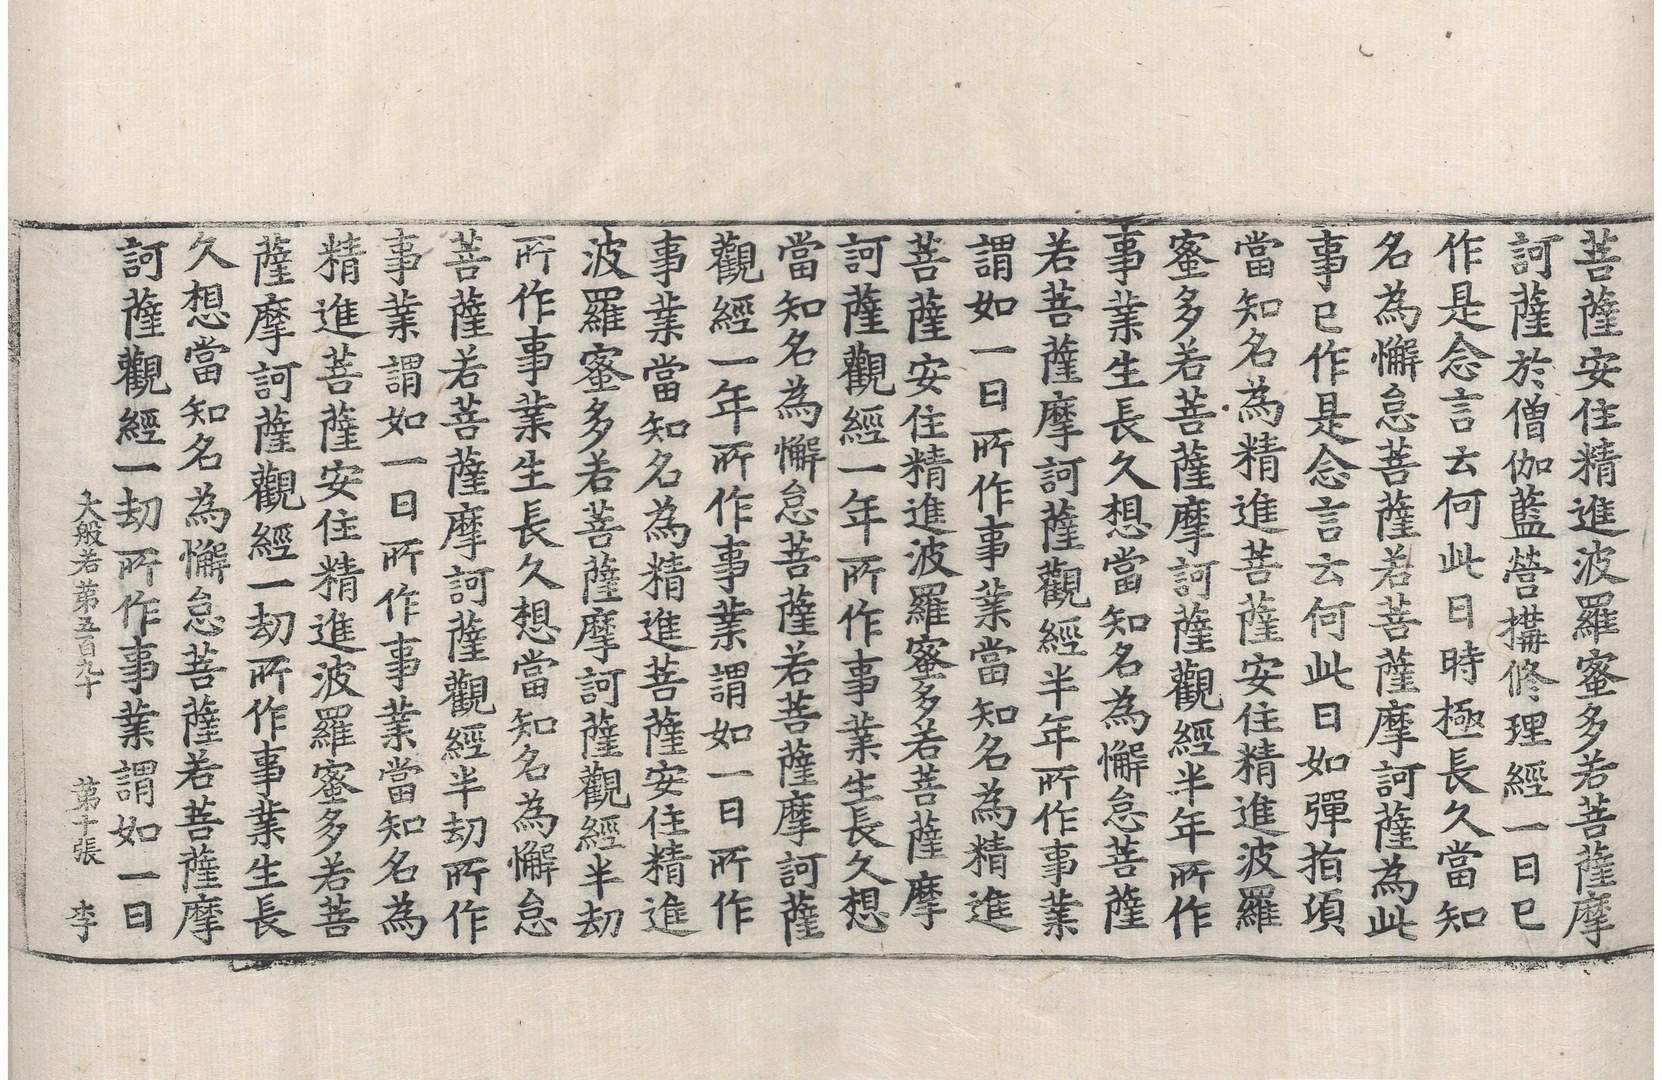 菩薩安住精進波羅蜜多若菩薩摩
訶薩於僧伽藍營搆修理經一日已
作是念言云何此日時極長久當知
名為懈怠菩薩若菩薩摩訶薩為此
事已作是念言云何此日如彈指頃
當知名為精進菩薩安住精進波羅
蜜多若菩薩摩訶薩觀經半年所作
事業生長久想當知名為懈怠菩薩
若菩薩摩訶薩觀經半年所作事業
謂如一日所作事業當知名為精進
菩薩安住精進波羅蜜多若菩薩摩
訶薩觀經一年所作事業生長久想
當知名為懈怠菩薩若菩薩摩訶薩
觀經一年所作事業謂如一日所作
事業當知名為精進菩薩安住精進
波羅蜜多若菩薩摩訶薩觀經半劫
所作事業生長久想當知名為懈怠
菩薩若菩薩摩訶薩觀經半劫所作
事業謂如一日所作事業當知名為
精進菩薩安住精進波羅蜜多若菩
薩摩訶薩觀經一劫所作事業生長
久想當知名為懈怠菩薩若菩薩摩
訶薩觀經一劫所作事業謂如一日
大般若第五百九十 第十張 李